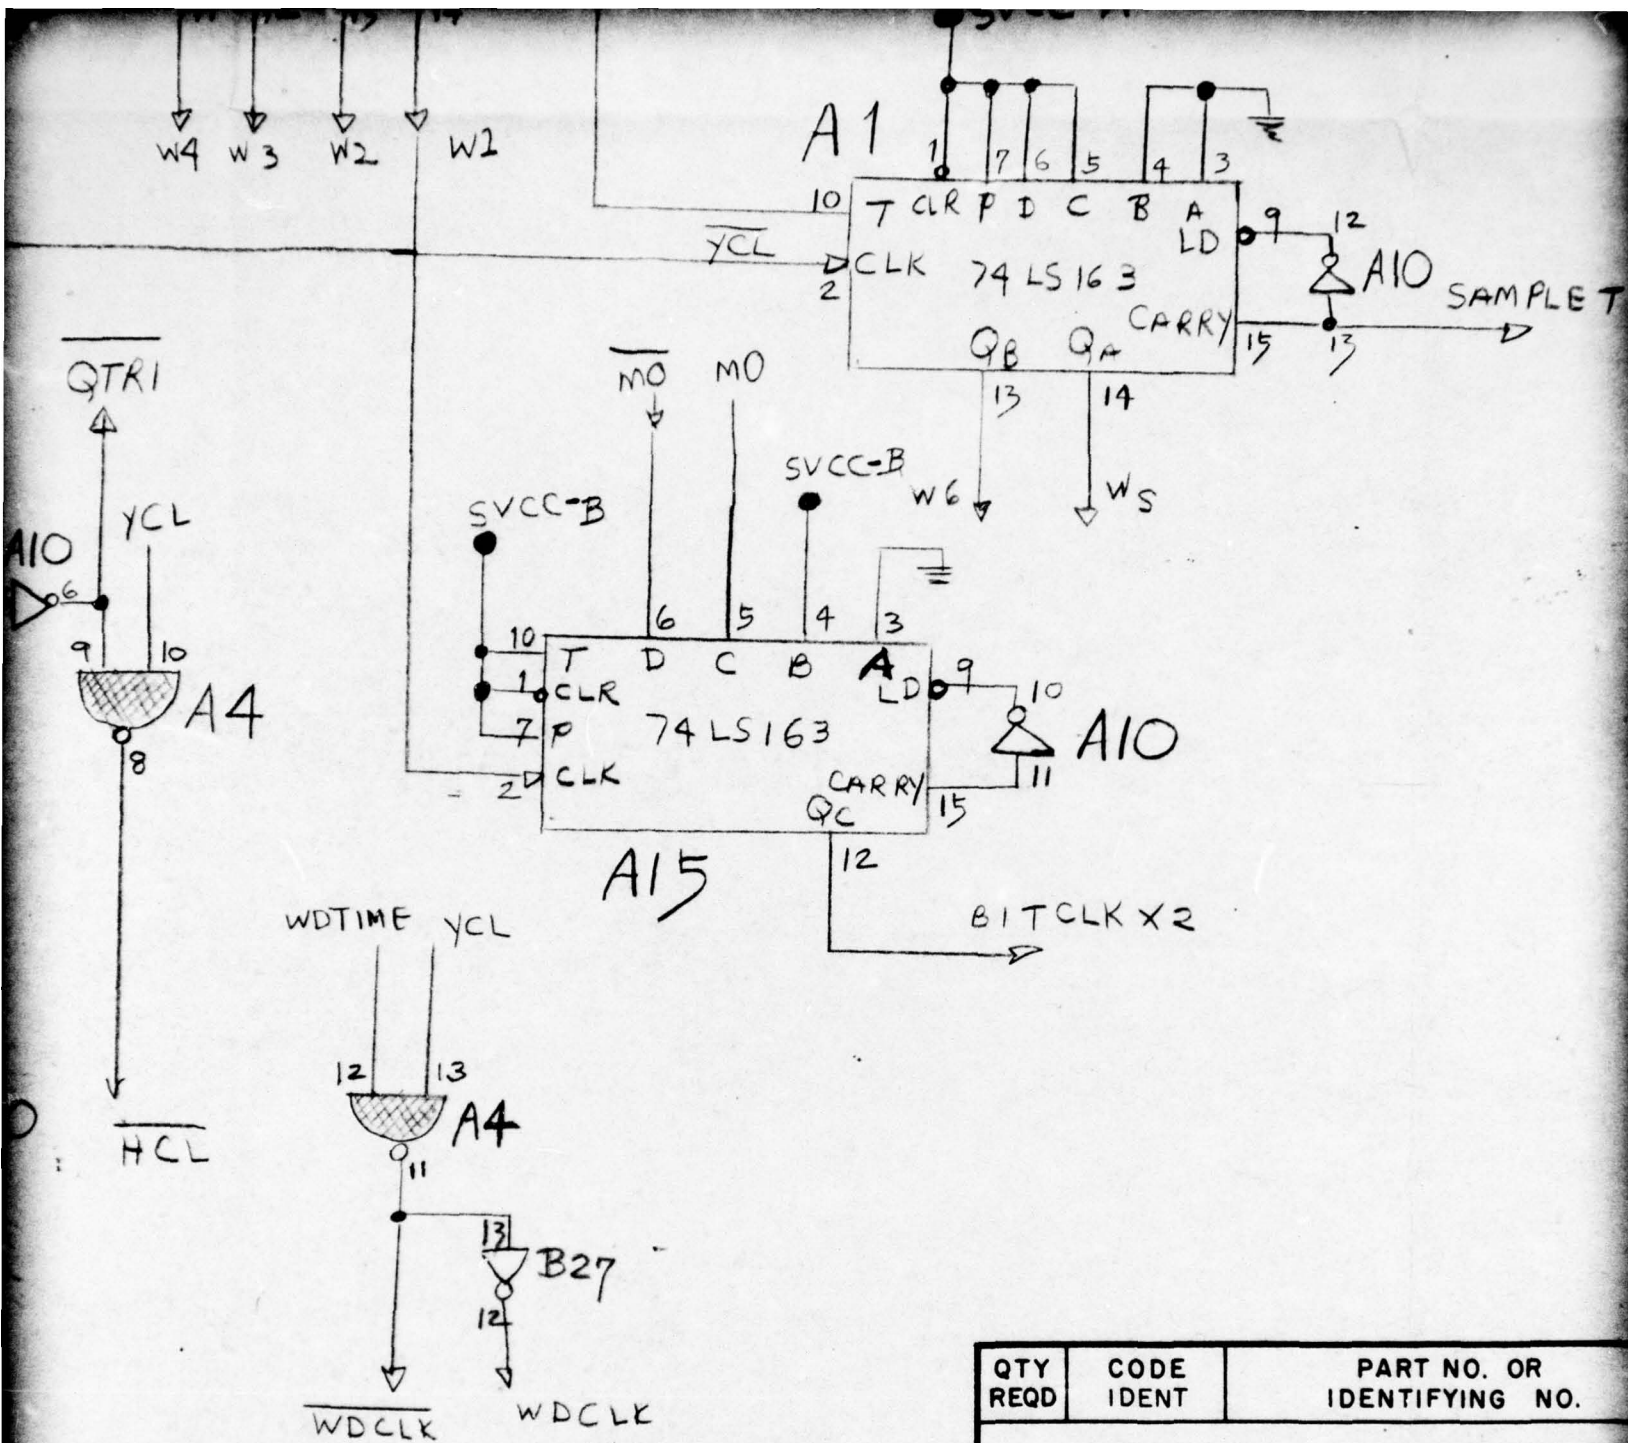 W4 W3 W2 W1
A1
1 7 6 5 4 3
10 T CLR P D C B A
LD 9 12
YCL
CLK 74LS163 A10
2
SAMPLE T
CARRY 15 13
QB QA
13 14
W6 W5
QTR1
M0 M0
SVCC-B
SVCC-B
YCL
A10
6
9 10
A4
8
6 5 4 3
10 T D C B A
1 CLR LD 9 10
7 P 74LS163 A10
2 CLK CARRY 15 11
QC
12
A15
BITCLK X2
WDTIME YCL
12 13
A4
11
HCL
13
B27
12
WDCLK WDCLK
QTY REQD
CODE IDENT
PART NO. OR
IDENTIFYING NO.